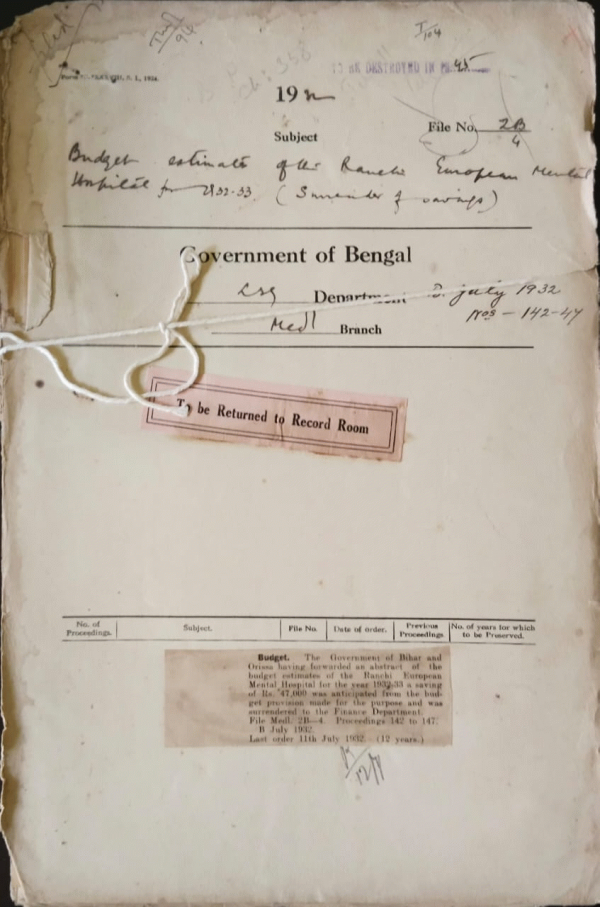 I/104
TO BE DESTROYED IN
45
1932
File No. 2B/4
Subject
Budget estimates of the Ranchi European Mental
Hospital for 1932-33. (Surrender of savings)
Government of Bengal
LSG Department B. July 1932
Medl Branch Nos - 142-47
To be Returned to Record Room
No. of Proceedings. Subject. File No. Date of order. Previous Proceedings. No. of years for which to be Preserved.
Budget. The Government of Bihar and
Orissa having forwarded an abstract of the
budget estimates of the Ranchi European
Mental Hospital for the year 1932-33 a saving
of Rs. 47,000 was anticipated from the bud-
get provision made for the purpose and was
surrendered to the Finance Department.
File Medl. 2B—4. Proceedings 142 to 147.
B July 1932.
Last order 11th July 1932. (12 years.)